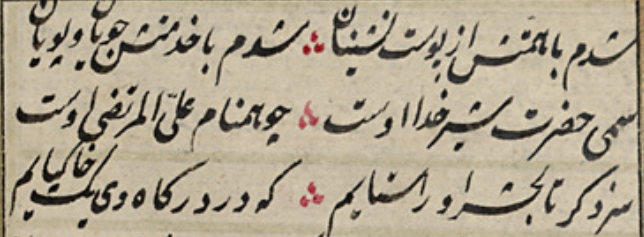 شدم با همتش از پوست نشینان ∴ شدم با خدمتش جویان و پویان
سمی حضرت شیر خدا اوست ∴ چو همنام علی المرتضی اوست
سزد گر تا بحشر او را ستایم ∴ که در درگاه وی یک خاکپایم